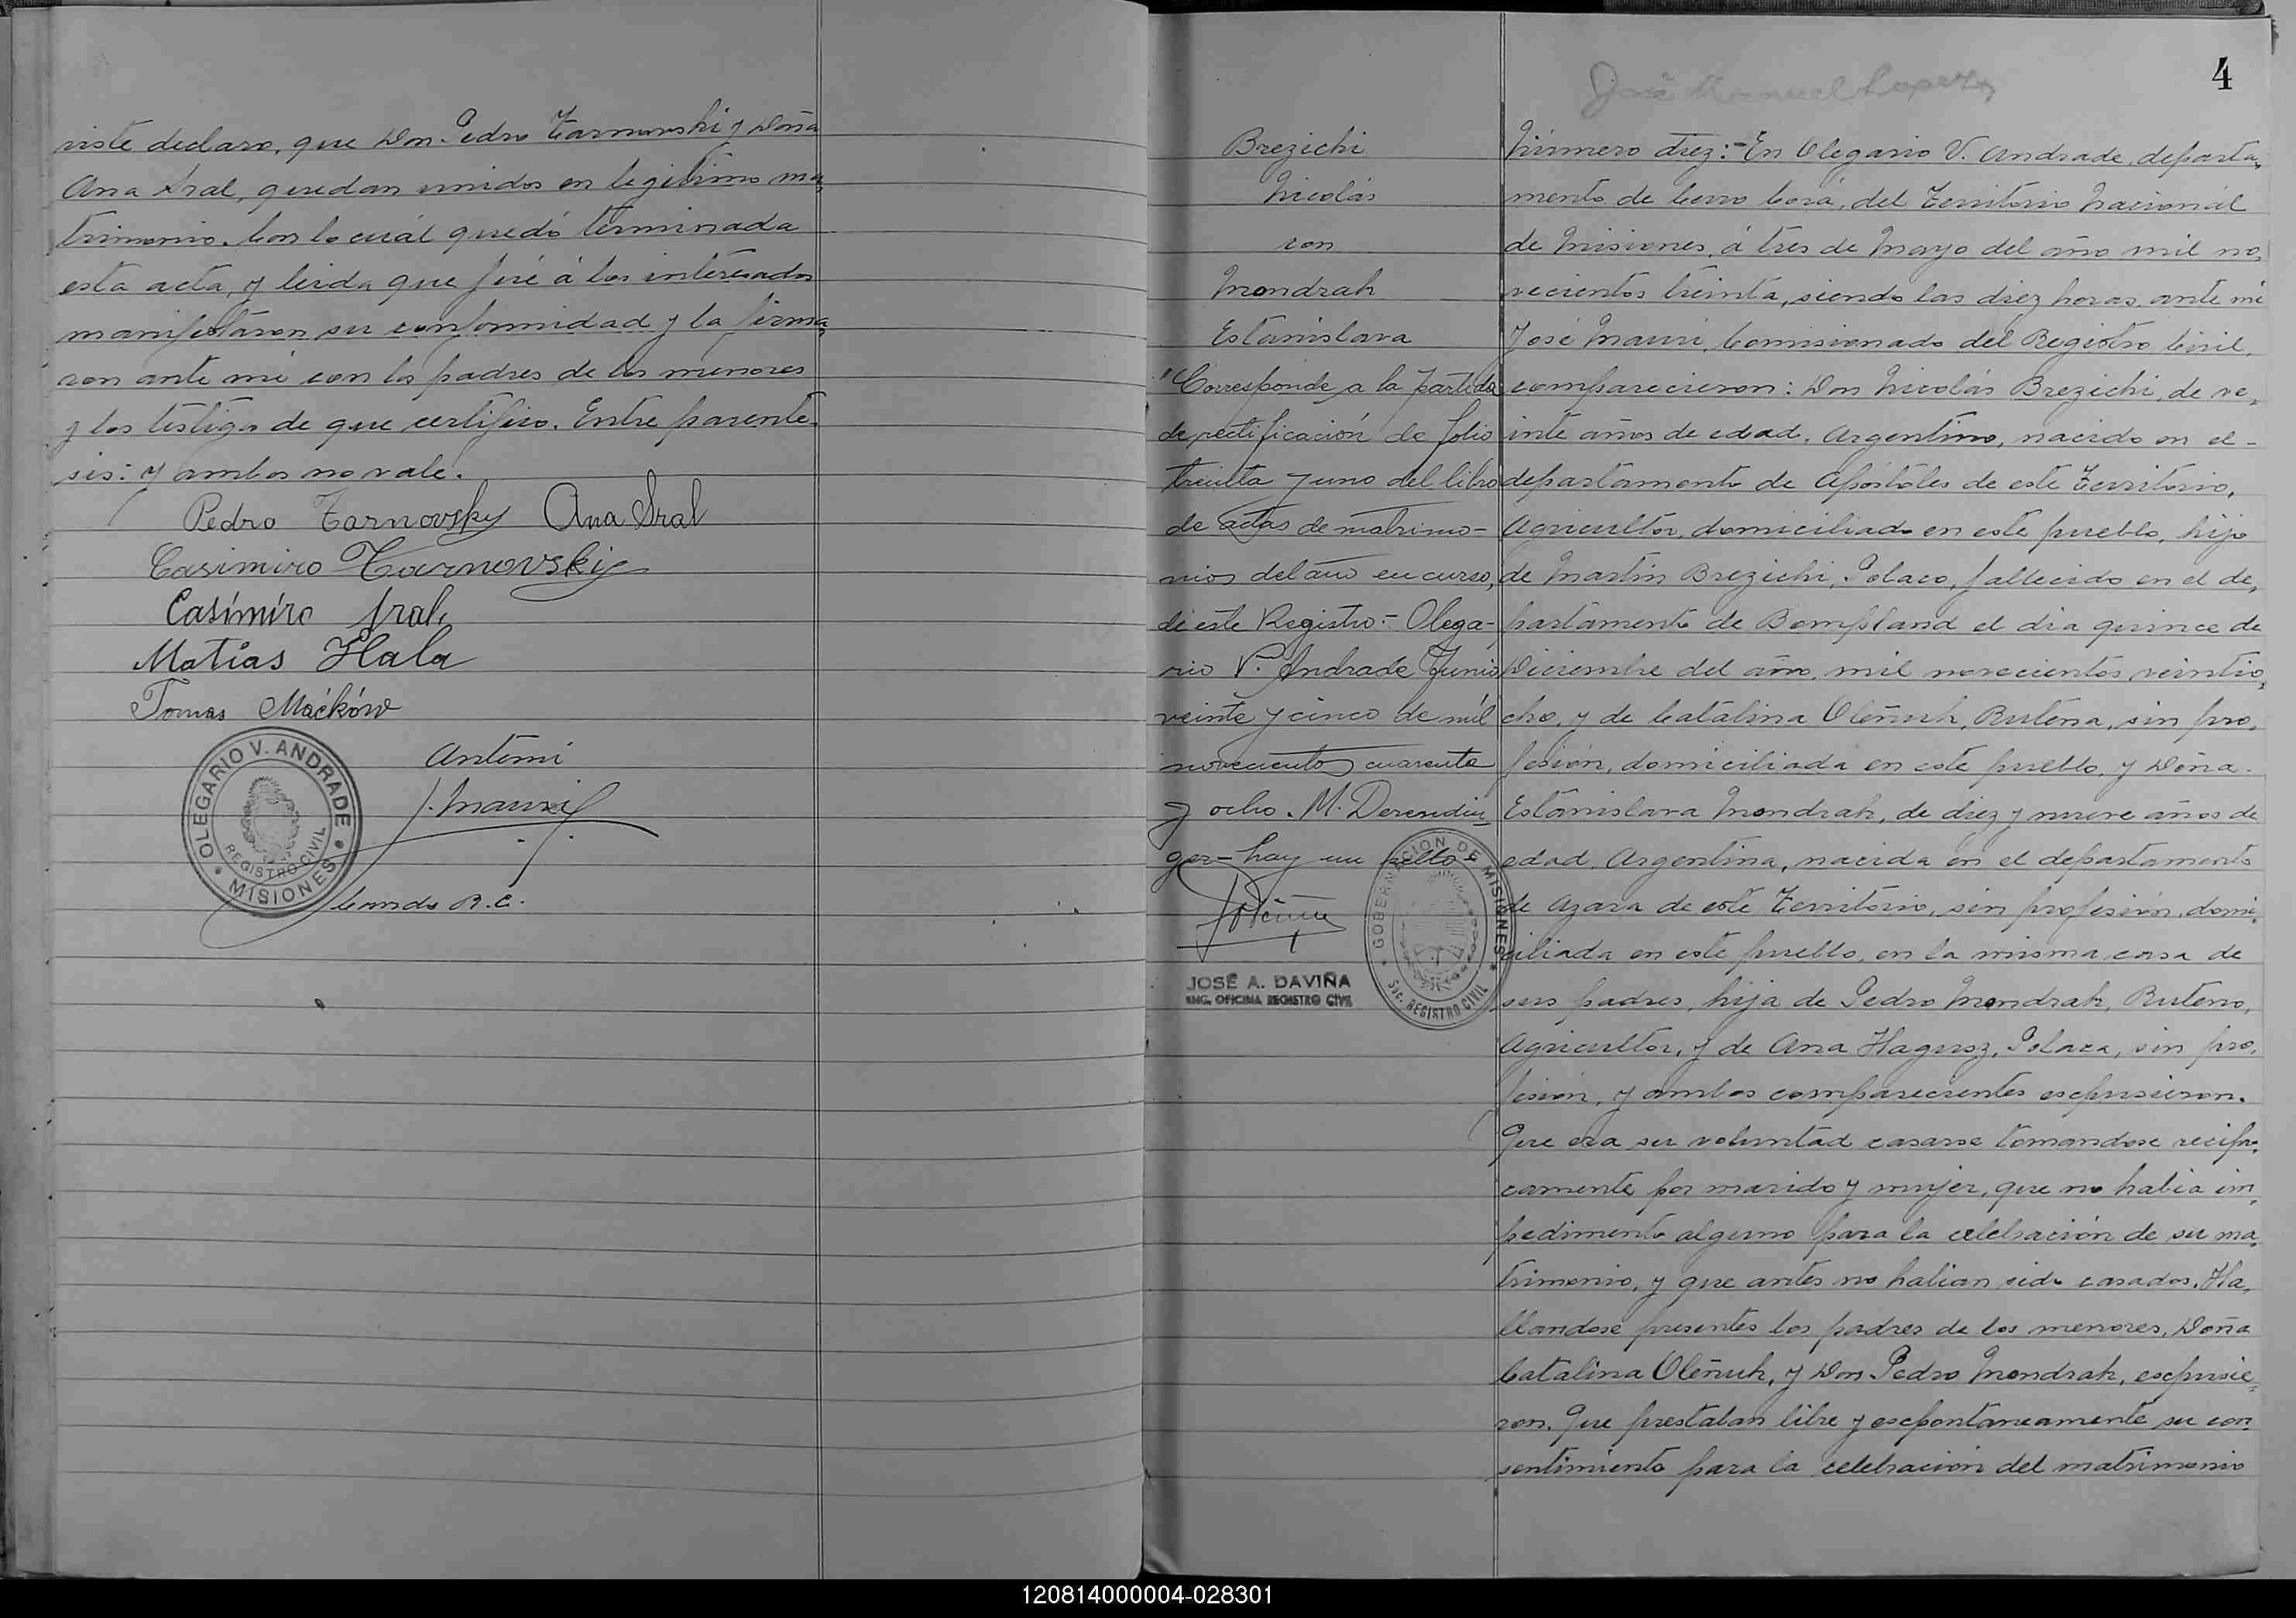 viste declaro, que Don Pedro Tarnowski y Doña
Ana Sral, quedan unidos en legitimo ma,
trimonio. Con lo cuál quedó terminada
esta acta, y leida que fué á los interesados
manifestaron su conformidad y la firma,
ron ante mi con los padres de los menores
y los testigos de que certifico. Entre parente,
sis: y ambos no vale.
Pedro Tarnovsky Ana Sral
Casimiro Tarnovskiy
Casímíro Sral,
Matías Hala
Tomas Maćków
Antemi
J. Mauri
Comdo R. C.
OLEGARIO V. ANDRADE
REGISTRO CIVIL
MISIONES
4
José Manuel Lopez
Brezichi
Nicolás
con
Mondrak
Estanislava
"Corresponde a la partida
de rectificación de folio
treinta y uno del libro
de actas de matrimo-
nios del año en curso,
de este Registro.- Olega-
rio V. Andrade Junio
veinte y cinco de mil
novecientos cuarenta
y ocho. M. Derendin
ger - hay un sello -
JOSÉ A. DAVIÑA
ENC. OFICINA REGISTRO CIVIL
GOBERNACION DE MISIONES
Sec. REGISTRO CIVIL
Número diez:- En Olegario V. Andrade, departa,
mento de Cerro Corá, del Territorio Nacionál
de Misiones, á tres de Mayo del año mil no,
vecientos treinta, siendo las diez horas, ante mi
José Mauri, Comisionado del Registro Civil,
comparecieron: Don Nicolás Brezichi, de ve,
inte años de edad, Argentino, nacido en el -
departamento de Apóstoles de este Territorio,
Agricultor, domiciliado en este pueblo, hijo
de Martin Brezichi, Polaco, fallecido en el de,
partamento de Bompland el dia quince de
Diciembre del año, mil novecientos, veintio,
cho, y de Catalina Oleñuk, Rutena, sin pro,
fesión, domiciliada en este pueblo, y Doña
Estanislava Mondrak, de diez y nueve años de
edad, Argentina, nacida en el departamento
de Azara de este Territorio, sin profesión, domi,
ciliada en este pueblo, en la misma casa de
sus padres, hija de Pedro Mondrak, Ruteno,
Agricultor, y de Ana Hagusz, Polaca, sin pro,
fesión, y ambos comparecientes escpusieron.
Que era su voluntad casarse tomandose recipro,
camente por marido y mujer, que no habia im,
pedimento alguno para la celebración de su ma,
trimonio, y que antes no habian sido casados. Ha,
llandose presentes los padres de los menores, Doña
Catalina Oleñuk, y Don Pedro Mondrak, escpusie,
ron. Que prestaban libre y escpontaneamente su con,
sentimiento para la celebración del matrimonio
120814000004-028301